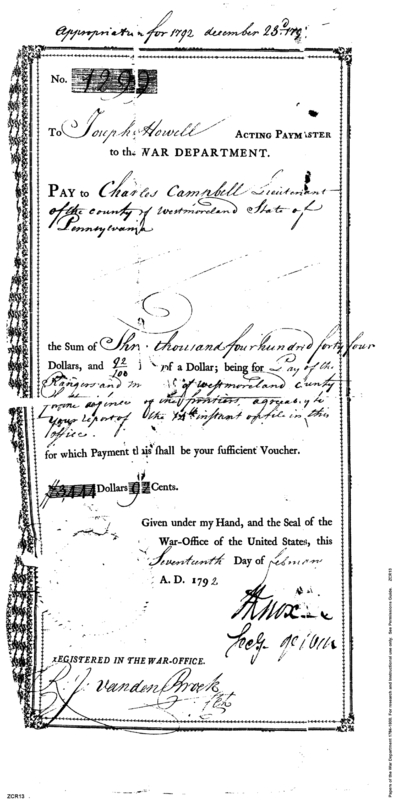 Appropriation for 1792 december 23d. 179
No. 1292
To Joseph Howell Acting Paymaster
to the War Department.
Pay to Charles Campbell Lieutenant
of the county of Westmoreland State of
Pennsylvania
the Sum of Thr thousand four hundred forty four
Dollars, and 92/100 of a Dollar; being for Pay of the
Rangers and of westmoreland county
frontiers, agreeably to
your report of the 14th instant on file in this
office.
for which Payment this shall be your sufficient Voucher.
$3444 Dollars 92 Cents.
Given under my Hand, and the Seal of the
War-Office of the United States, this
Seventeenth Day of
A. D. 1792
HKnox
Secy. of war
Registered in the War-Office.
R. J. Vanden Broek
ZCR13
Papers of the War Department 1784-1800. For research and instructional use only. See Permissions Guide. ZCR13